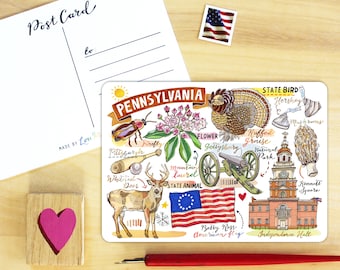 Post Card
to
MADE BY
PENNSYLVANIA
STATE BIRD
Hershey
FLOWER
Ruffed
Grouse
Firefly
Pittsburgh
Mountain
Laurel
Gettysburg
National
Park
White Tail
Deer
STATE ANIMAL
Kennett
Square
Betsy Ross
Independence Hall